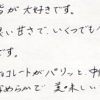 が大好きです。
良い甘さで、いくつでも
コレートがパリッと、中
なめらかで 美味しい